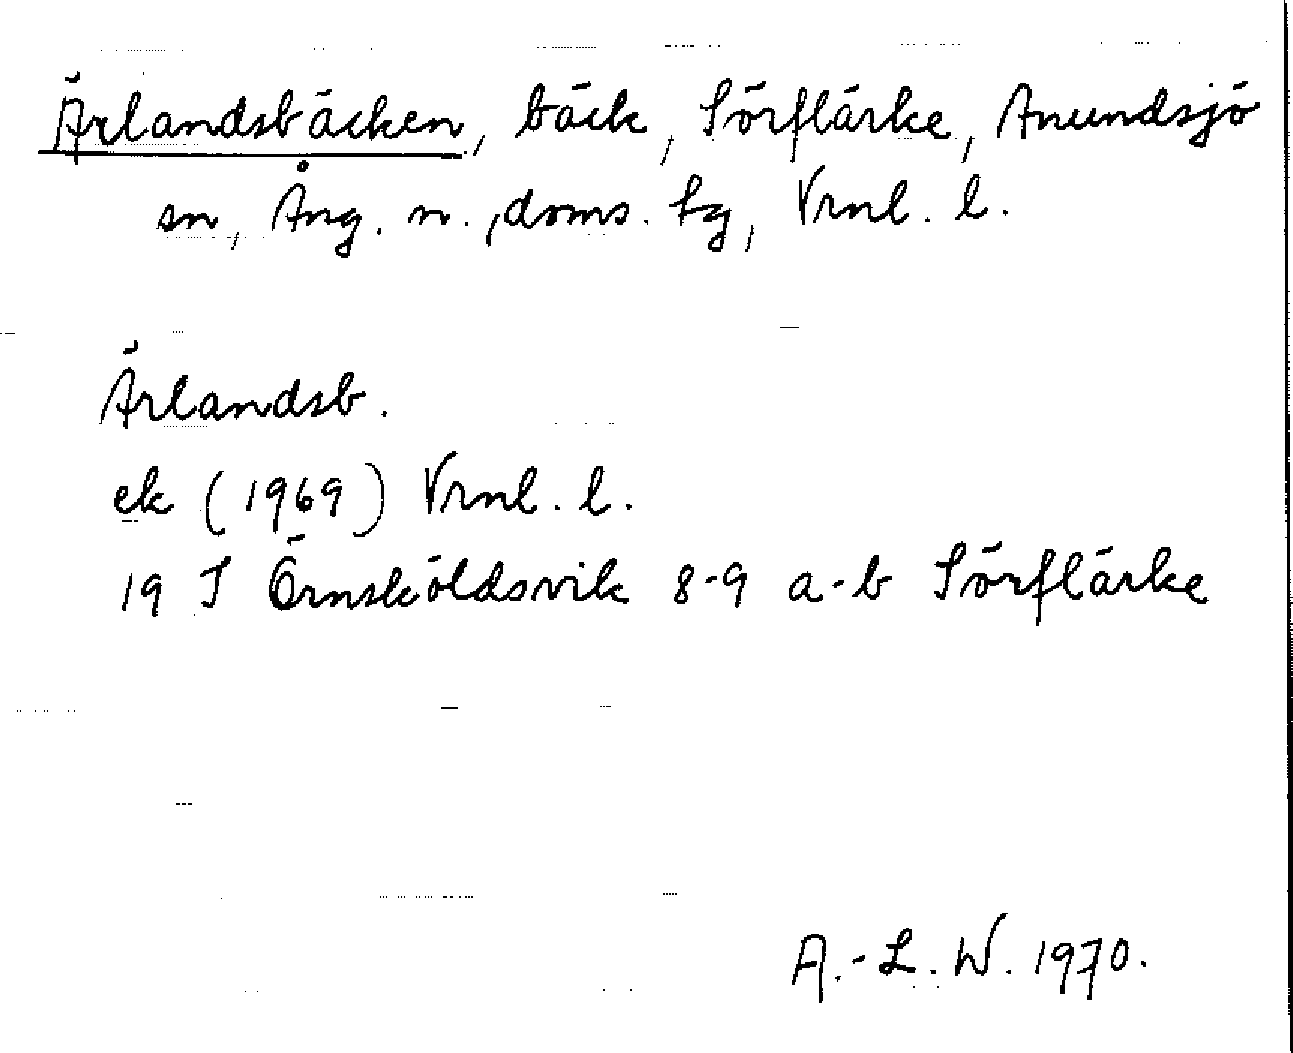 Ärlandsbäcken, bäck, Sörflärke, Anundsjö
sn, Ång. n., doms. tg, Vrnl. l.
Ärlandsb.
ek (1969) Vrnl. l.
19 J Örnsköldsvik 8-9 a-b Sörflärke
A.-L. W. 1970.